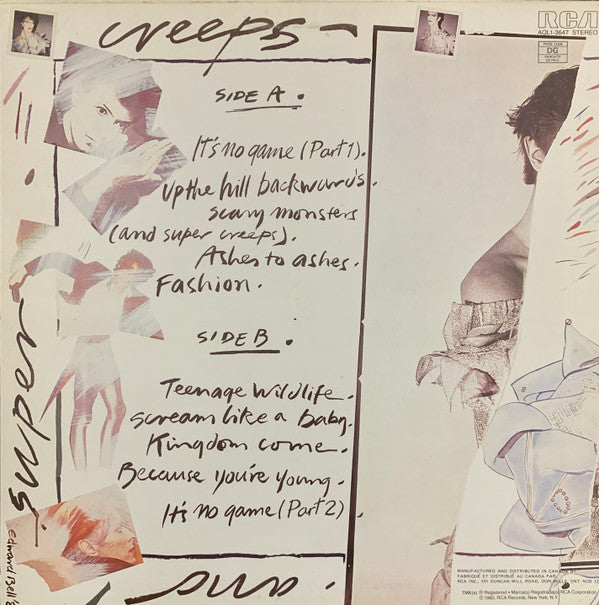 creeps
RCA
AQL1-3647 STEREO
DG
SIDE A.
It's no game (Part 1).
up the hill backwards.
scary monsters
(and super creeps).
Ashes to ashes.
Fashion.
SIDE B.
Teenage Wildlife.
scream like a baby.
Kingdom come.
Because you're young.
It's no game (Part 2).
super
Edward Bell '8
and
MANUFACTURED AND DISTRIBUTED IN CANADA BY
FABRIQUÉ ET DISTRIBUÉ AU CANADA PAR
RCA INC., 101 DUNCAN MILL ROAD, DON MILLS, ONT.
TMK(s) ® Registered • Marca(s) Registrada(s) RCA Corporation
© 1980, RCA Records, N.Y., N.Y.